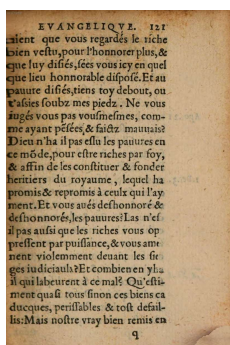 EVANGELIQVE. 121
uient que vous regardés le riche
bien vestu, pour l'honnorer plus, &
que luy disiés, sées vous icy en quel
que lieu honnorable disposé. Et au
pauure disiés, tiens toy debout, ou
t'assies soubz mes piedz. Ne vous
iugés vous pas vousmesmes, com-
me ayant pésées, & faictz mauuais?
Dieu n'ha il pas eslu les pauures en
ce mõde, pour estre riches par foy,
& affin de les constituer & fonder
heritiers du royaume, lequel ha
promis & repromis à ceulx qui l'ay
ment. Et vous aués deshonnoré &
deshonnorés, les pauures? Las n'est
il pas aussi que les riches vous op
pressent par puissance, & vous ame
nent violemment deuant les sie
ges iudiciauls? Et combien en y ha
il qui labeurent à ce mal? Qu'esti-
ment quasi tous sinon ces biens ca
ducques, perissables & tost defail-
lis: Mais nostre vray bien remis en
q